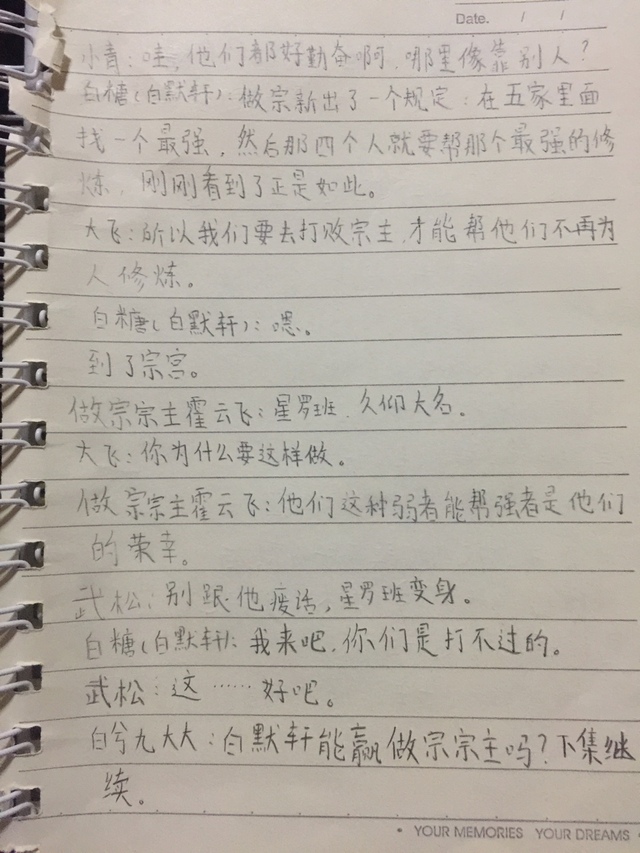 Date. / /
小青：哇，他们都好勤奋啊，哪里像靠别人？
白糖（白默轩）：做宗新出了一个规定：在五家里面
找一个最强，然后那四个人就要帮那个最强的修
炼，刚刚看到了正是如此。
大飞：所以我们要去打败宗主，才能帮他们不再为
人修炼。
白糖（白默轩）：嗯。
到了宗宫。
做宗宗主霍云飞：星罗班，久仰大名。
大飞：你为什么要这样做。
做宗宗主霍云飞：他们这种弱者能帮强者是他们
的荣幸。
武松：别跟他废话，星罗班变身。
白糖（白默轩）：我来吧，你们是打不过的。
武松：这……好吧。
白兮九大大：白默轩能赢做宗宗主吗？下集继
续。
• YOUR MEMORIES YOUR DREAMS